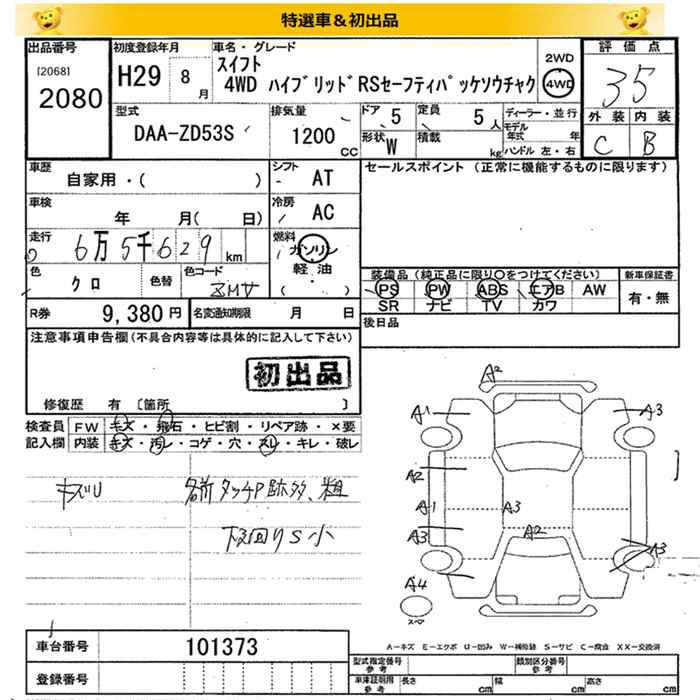 特選車＆初出品
出品番号 初度登録年月 車名・グレード 評価点
[2068] 2080 H29 8月 スイフト 2WD 35
4WD ハイブリッドRSセーフティパッケソウチャク 4WD
外装 内装
C B
型式 排気量 ドア 5 定員 5人 ディーラー・並行
DAA-ZD53S 1200CC 形状 W 積載 kg モデル年式 年
ハンドル 左・右
車歴 シフト セールスポイント (正常に機能するものに限ります)
自家用・( ) AT
車検 冷房
年 月( 日) AC
走行 燃料
6万5千629km ガソリン
色 色替 色コード 軽油
クロ ZMV ・( )
装備品 (純正品に限り○をつけてください) 新車保証書
PS PW ABS エアB AW 有・無
SR ナビ TV カワ
R券 9,380円 名変通知期限 月 日 後日品
注意事項申告欄(不具合内容等は具体的に記入して下さい)
初出品
修復歴 有 〔箇所 〕
検査員 FW キズ・飛石・ヒビ割・リペア跡・×要
記入欄 内装 キズ・汚レ・コゲ・穴・スレ・キレ・破レ
キズU 各所タッチP跡多、粗
下回りS小
A2
A1 A3
A2
A1 A3
A3 A2 A3
A4
スペア
A－キズ E－エクボ U－凹み W－補修跡 S－サビ C－腐食 XX－交換済
車台番号 101373
登録番号
型式指定番号 参考 類別区分番号 参考
車庫証明用 参考 長さ cm 幅 cm 高さ cm